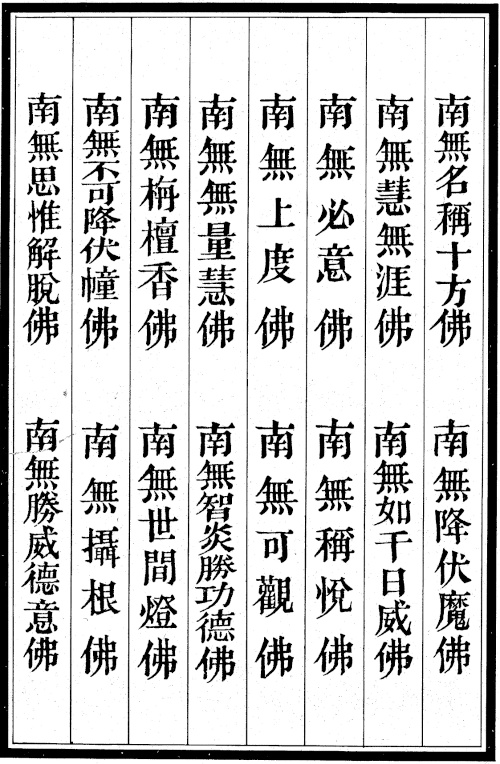 南無名稱十方佛 南無降伏魔佛
南無慧無涯佛 南無如千日威佛
南無必意佛 南無稱悅佛
南無上度佛 南無可觀佛
南無無量慧佛 南無智炎勝功德佛
南無栴檀香佛 南無世間燈佛
南無不可降伏幢佛 南無攝根佛
南無思惟解脫佛 南無勝威德意佛